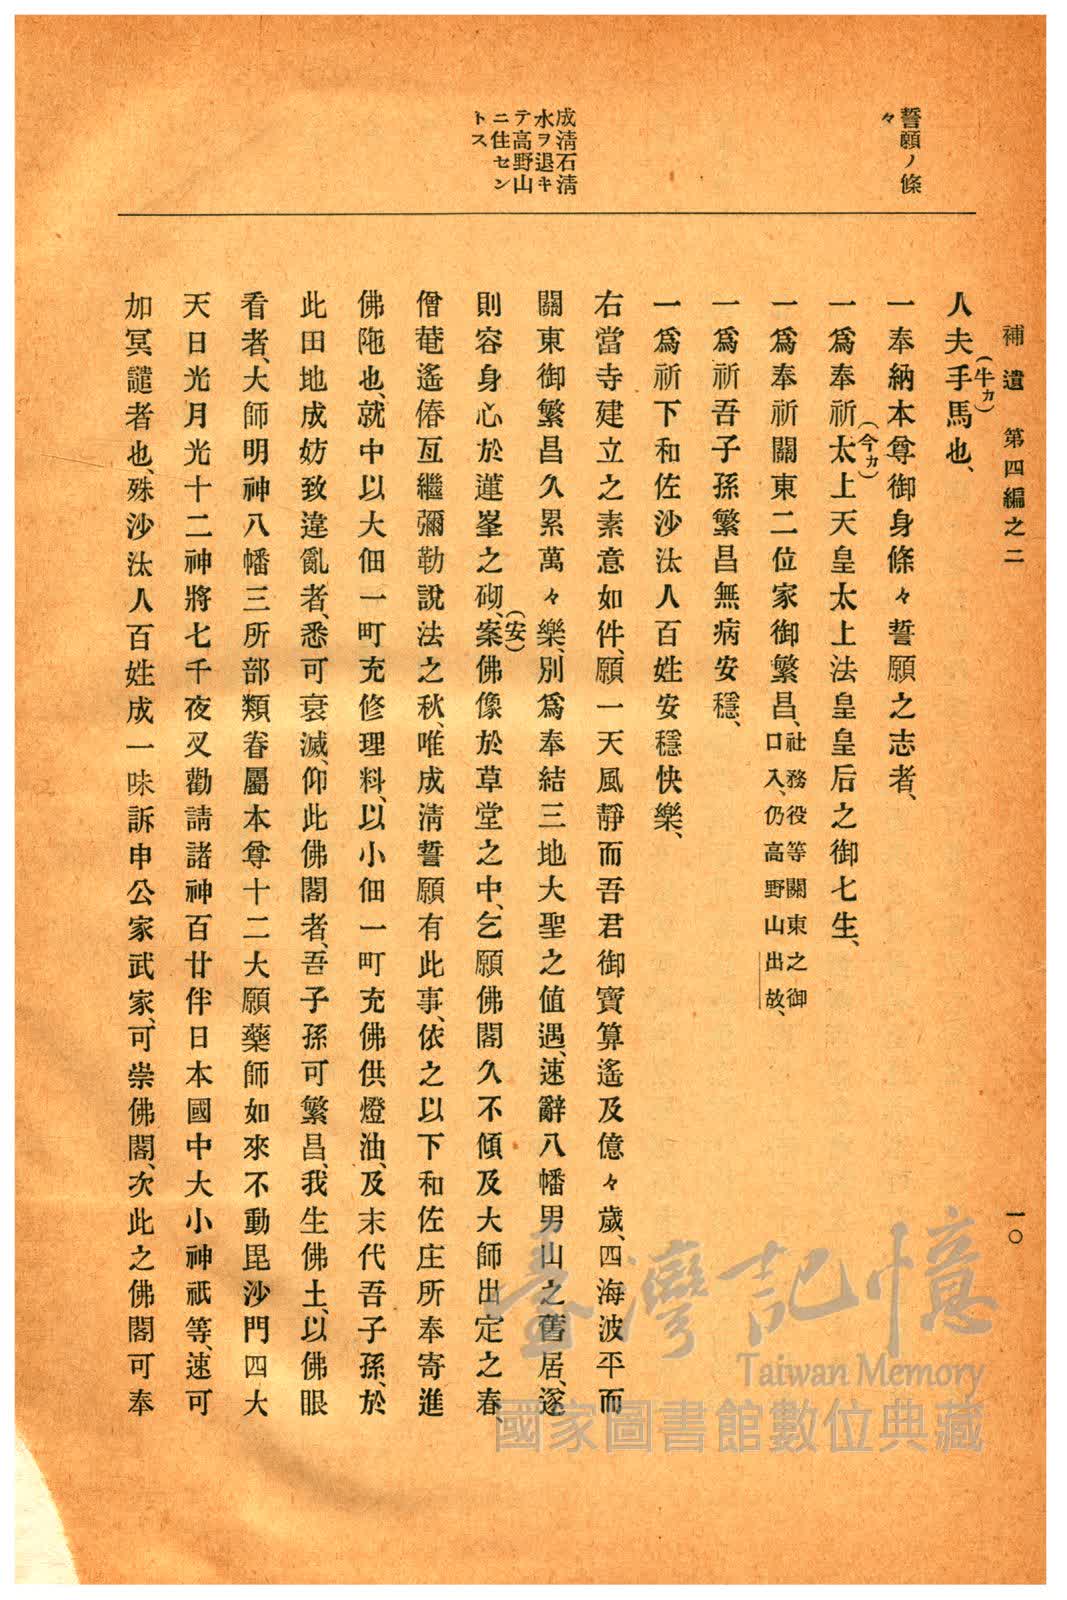 補遺　第四編之二　一〇
誓願ノ條
々
成淸石淸
水ヲ退キ
テ高野山
ニ住セン
トス
人夫手(牛カ)馬也、
一奉納本尊御身條々誓願之志者、
一爲奉祈太(今カ)上天皇太上法皇皇后之御七生、
一爲奉祈關東二位家御繁昌、社務役等關東之御口入、仍高野山出故、
一爲祈吾子孫繁昌無病安穩、
一爲祈下和佐沙汰人百姓安穩快樂、
右當寺建立之素意如件、願一天風靜而吾君御寶算遙及億々歲、四海波平而
關東御繁昌久累萬々樂、別爲奉結三地大聖之値遇、速辭八幡男山之舊居、遂
則容身心於蓮峯之砌、案(安)佛像於草堂之中、乞願佛閣久不傾及大師出定之春、
僧菴遙偆亙繼彌勒說法之秋、唯成淸誓願有此事、依之以下和佐庄所奉寄進
佛陁也、就中以大佃一町充修理料、以小佃一町充佛供燈油、及末代吾子孫、於
此田地成妨致違亂者、悉可衰滅、仰此佛閣者、吾子孫可繁昌、我生佛土、以佛眼
看者、大師明神八幡三所部類眷屬本尊十二大願藥師如來不動毘沙門四大
天日光月光十二神將七千夜叉勸請諸神百廿伴日本國中大小神祇等、速可
加冥譴者也、殊沙汰人百姓成一味訴申公家武家、可崇佛閣、次此之佛閣可奉
臺灣記憶
Taiwan Memory
國家圖書館數位典藏